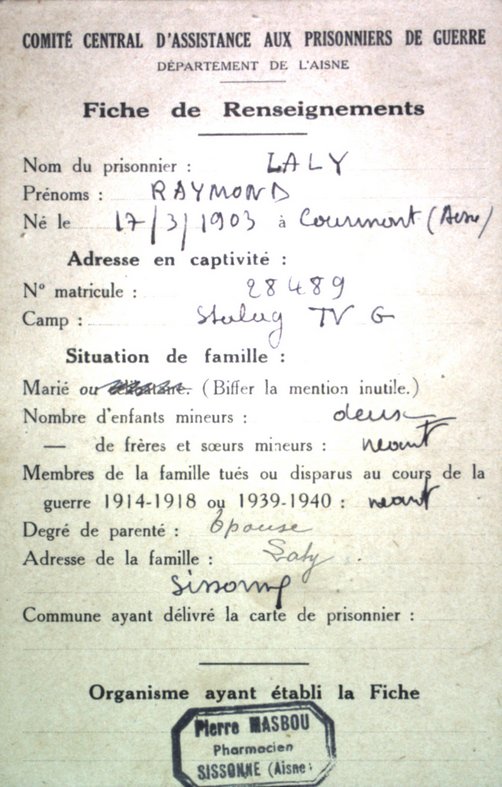 COMITÉ CENTRAL D'ASSISTANCE AUX PRISONNIERS DE GUERRE
DÉPARTEMENT DE L'AISNE
Fiche de Renseignements
Nom du prisonnier : LALY
Prénoms : RAYMOND
Né le 17/3/1903 à Courmont (Aisne)
Adresse en captivité :
N° matricule : 28489
Camp : Stalag IV G
Situation de famille :
Marié ou célibataire. (Biffer la mention inutile.)
Nombre d'enfants mineurs : deux
— de frères et sœurs mineurs : neant
Membres de la famille tués ou disparus au cours de la
guerre 1914-1918 ou 1939-1940 : neant
Degré de parenté : Epouse
Adresse de la famille : Laly
Sissonne
Commune ayant délivré la carte de prisonnier :
Organisme ayant établi la Fiche
Pierre MASBOU
Pharmacien
SISSONNE (Aisne)